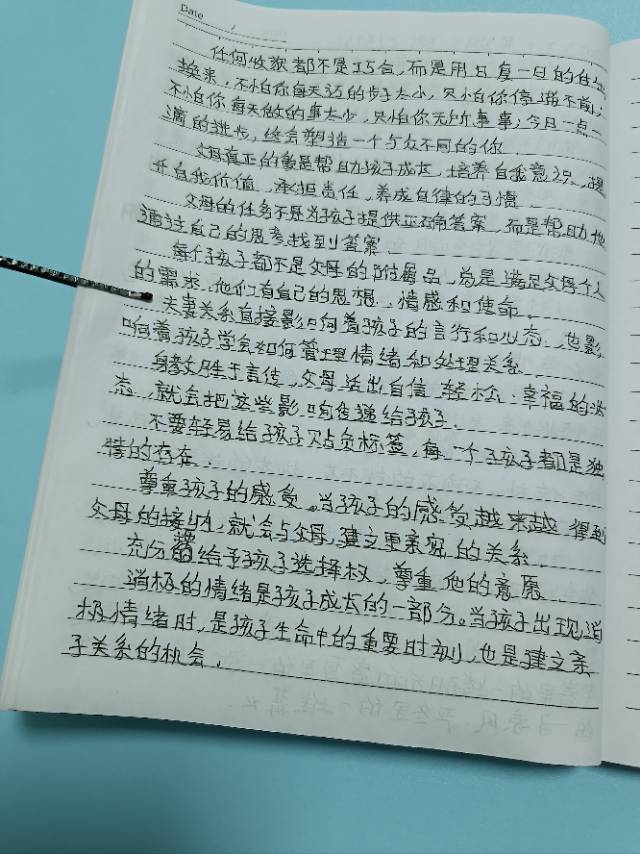 Date
任何收获都不是巧合,而是用日复一日的付出
换来,不怕你每天迈的步子太小,只怕你停滞不前,
不怕你每天做的事太少,只怕你无所事事;今日一点一
滴的进步,终会塑造一个与众不同的你.
父母真正的爱是帮助孩子成长,培养自我意识、提
升自我价值、承担责任、养成自律的习惯.
父母的任务不是为孩子提供正确答案,而是帮助他
通过自己的思考找到答案
每个孩子都不是父母的附属品,总是满足父母个人
的需求,他们有自己的思想、情感和使命。
夫妻关系直接影响着孩子的言行和心态、也影
响着孩子学会如何管理情绪和处理关系
身教胜于言传,父母活出自信、轻松、幸福的状
态,就会把这些影响传递给孩子.
不要轻易给孩子贴负标签,每一个孩子都是独
特的存在.
尊重孩子的感受。当孩子的感受越来越得到
父母的接纳,就会与父母,建立更亲密的关系.
充分的给予孩子选择权,尊重他的意愿
消极的情绪是孩子成长的一部分。当孩子出现消
极情绪时,是孩子生命中的重要时刻,也是建立亲
子关系的机会.